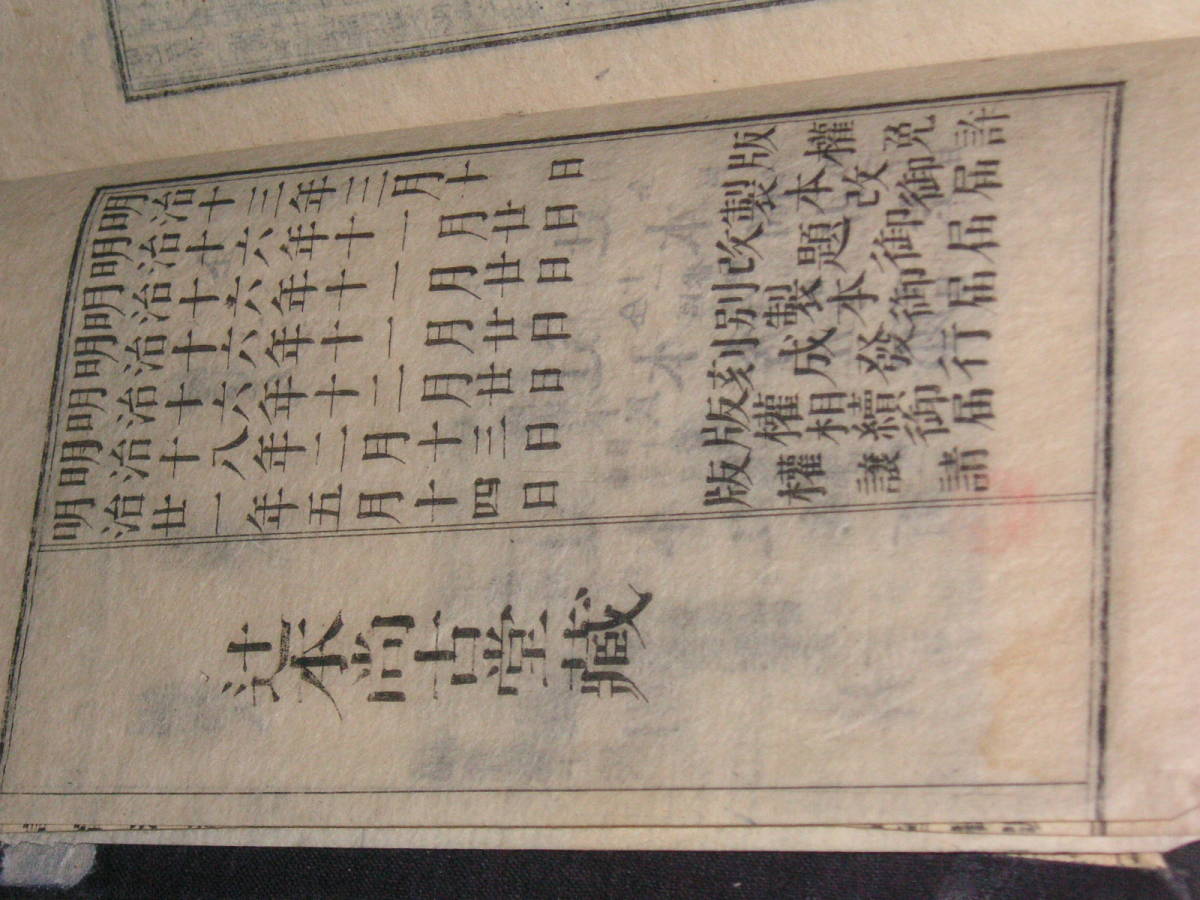 明治十三年三月十日 版權免許
明治十六年十一月廿日 製本改御届
明治十六年十一月廿日 改題御届
明治十六年十一月廿日 別製本御届
明治十六年十二月廿日 刻成發行
明治十八年二月十三日 版權相續御届
明治廿一年五月十四日 版權譲請
辻本尚古堂藏